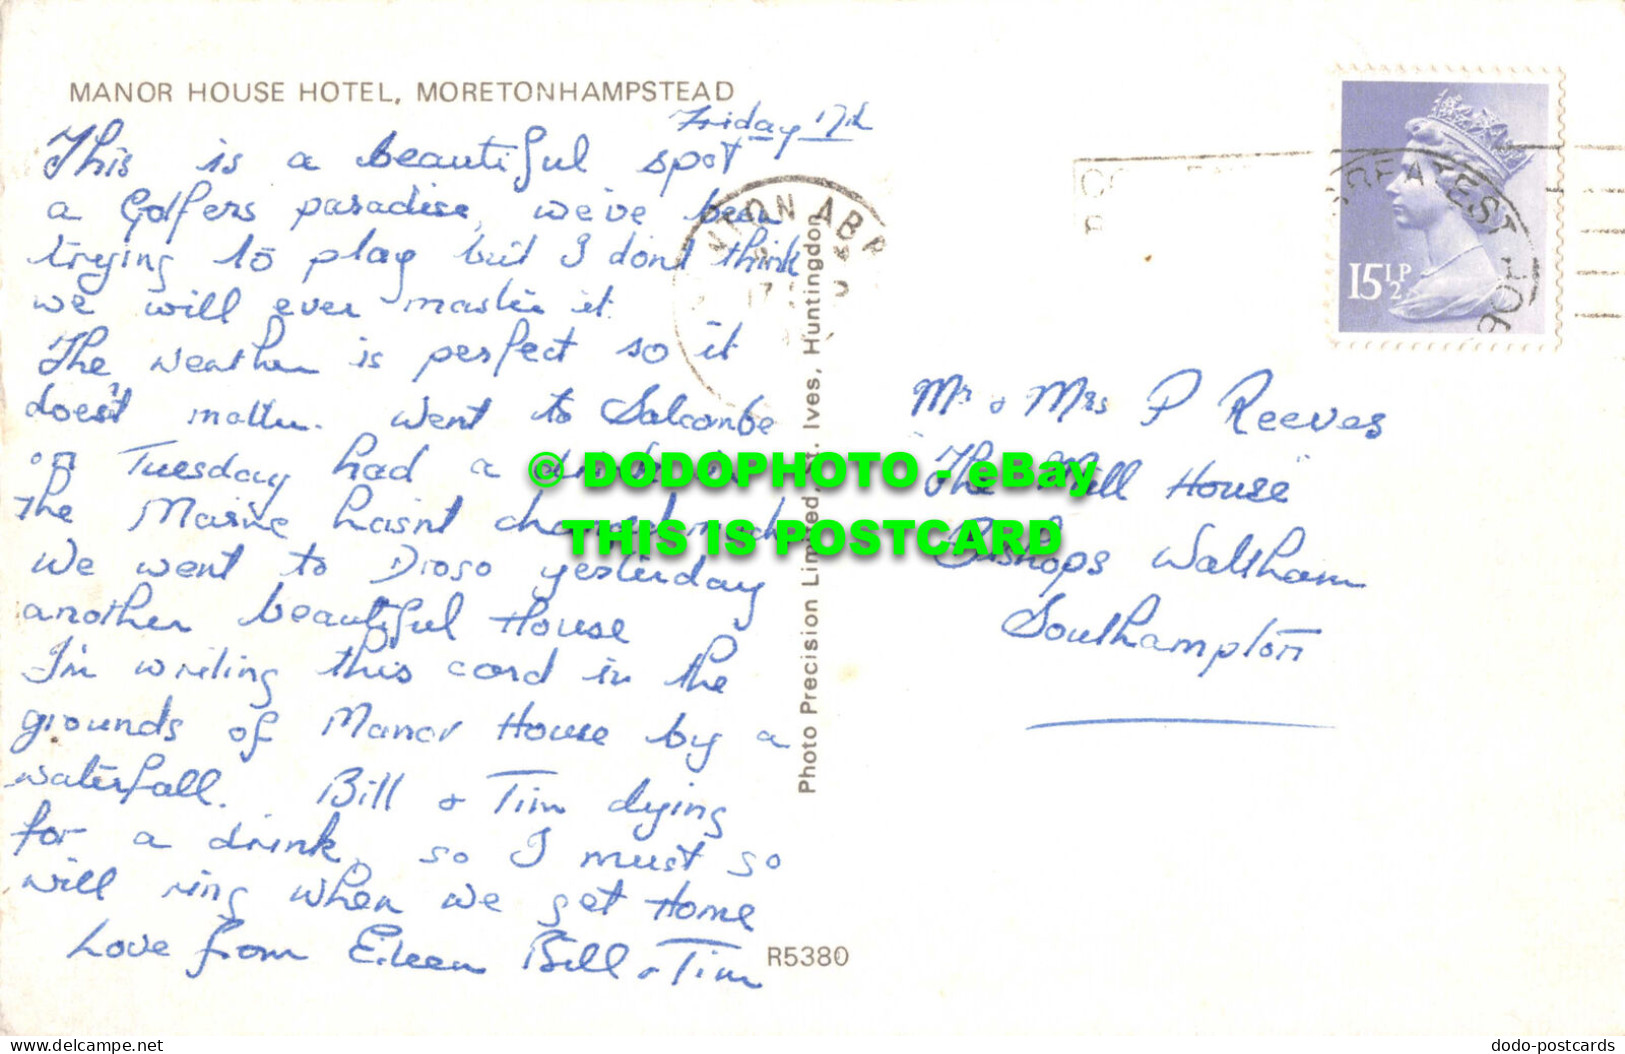 MANOR HOUSE HOTEL, MORETONHAMPSTEAD
Friday 17th
This is a beautiful spot
a Golfers paradise, we've been
trying to play but I don't think
we will ever master it.
The weather is perfect so it
does't matter. Went to Salcombe
on Tuesday had a drink in
The Marine hasn't changed much
We went to Drogo yesterday
another beautiful House
I'm writing this card in the
grounds of Manor House by a
waterfall. Bill & Tim dying
for a drink, so I must go
will ring when we get Home
Love from Eileen Bill & Tim
R5380
Photo Precision Limited, St. Ives, Huntingdon
NTON ABB
17
GREATEST
FOR
15½P
Mr & Mrs P Reeves
"The Mill House"
Bishops Waltham
Southampton
© DODOPHOTO - eBay
THIS IS POSTCARD
delcampe.net
dodo-postcards